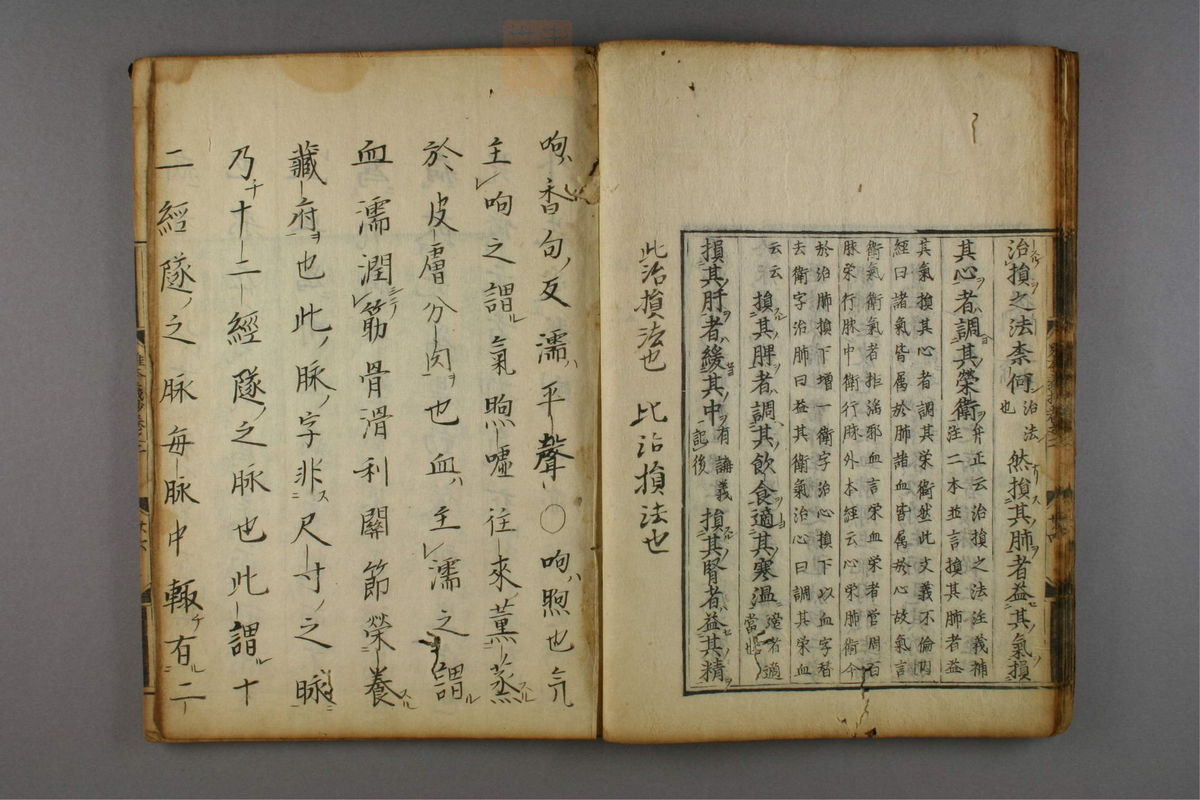 治損之法柰何治法也然損其肺者益其氣損
其心者調其榮衛弁正云治損之法注義補注二本並言損其肺者益
其氣損其心者調其榮衛然此文義不倫因
經曰諸氣皆属於肺諸血皆属於心故氣言
衛氣衛氣者拒滿邪血言榮血榮者管周百
脉榮行脉中衛行脉外本經云心榮肺衛今
於治肺損下增一衛字治心損下以血字替
去衛字治肺曰益其衛氣治心曰調其榮血
云云損其脾者調其飲食適其寒温適者適當也
損其肝者緩其中有論義記後損其腎者益其精
此治損法也 此治損法也
呴香句ノ反濡ハ平聲○呴ハ煦也氣
主レ呴之謂ル氣煦噓往來薫蒸スル
於皮膚分肉ヲ也血ハ主レ濡之謂ル
血濡潤筋骨滑利關節榮養スル
藏府ヲ也此ノ脉ノ字非ス尺寸ノ之脉ニ
乃チ十二經隧ノ之脉也此謂ル十
二經隧ノ之脉每脉中輙チ有ル二